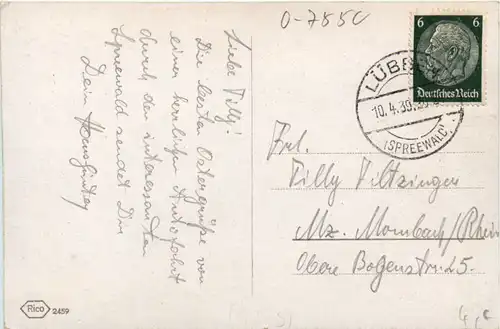 O-7550
Liebe Tilly!
Die besten Ostergrüße von
einer herrlichen Autofahrt
durch den interessanten
Spreewald sendet Dir
Dein
6 6
Deutsches Reich
LÜBBEN
10.4.39.
(SPREEWALD)
Frl.
Tilly Viltzingen
Mz. Mombach/Rhein
Obere Bogenstr. 25.
Rico 2459